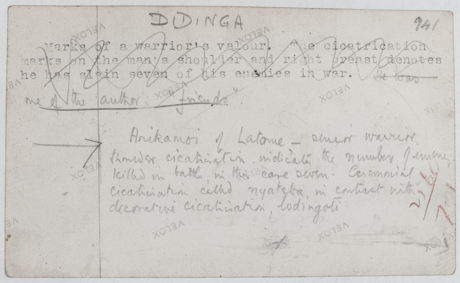 DIDINGA
941
Marks of a warrior's valour. The cicatrication
marks on the man's shoulder and right breast denotes
he has slain seven of his enemies in war. He was
one of the author's "friends"
of Latome - senior warrior
shoulder cicatrization indicates the number of enemy
killed in battle, in this case seven. Ceremonial
cicatrization called nyatgha, in contrast with
decorative cicatrization, lodingoti
VELOX
VELOX
VELOX
VELOX
VELOX
VELOX
VELOX
VELOX
VELOX